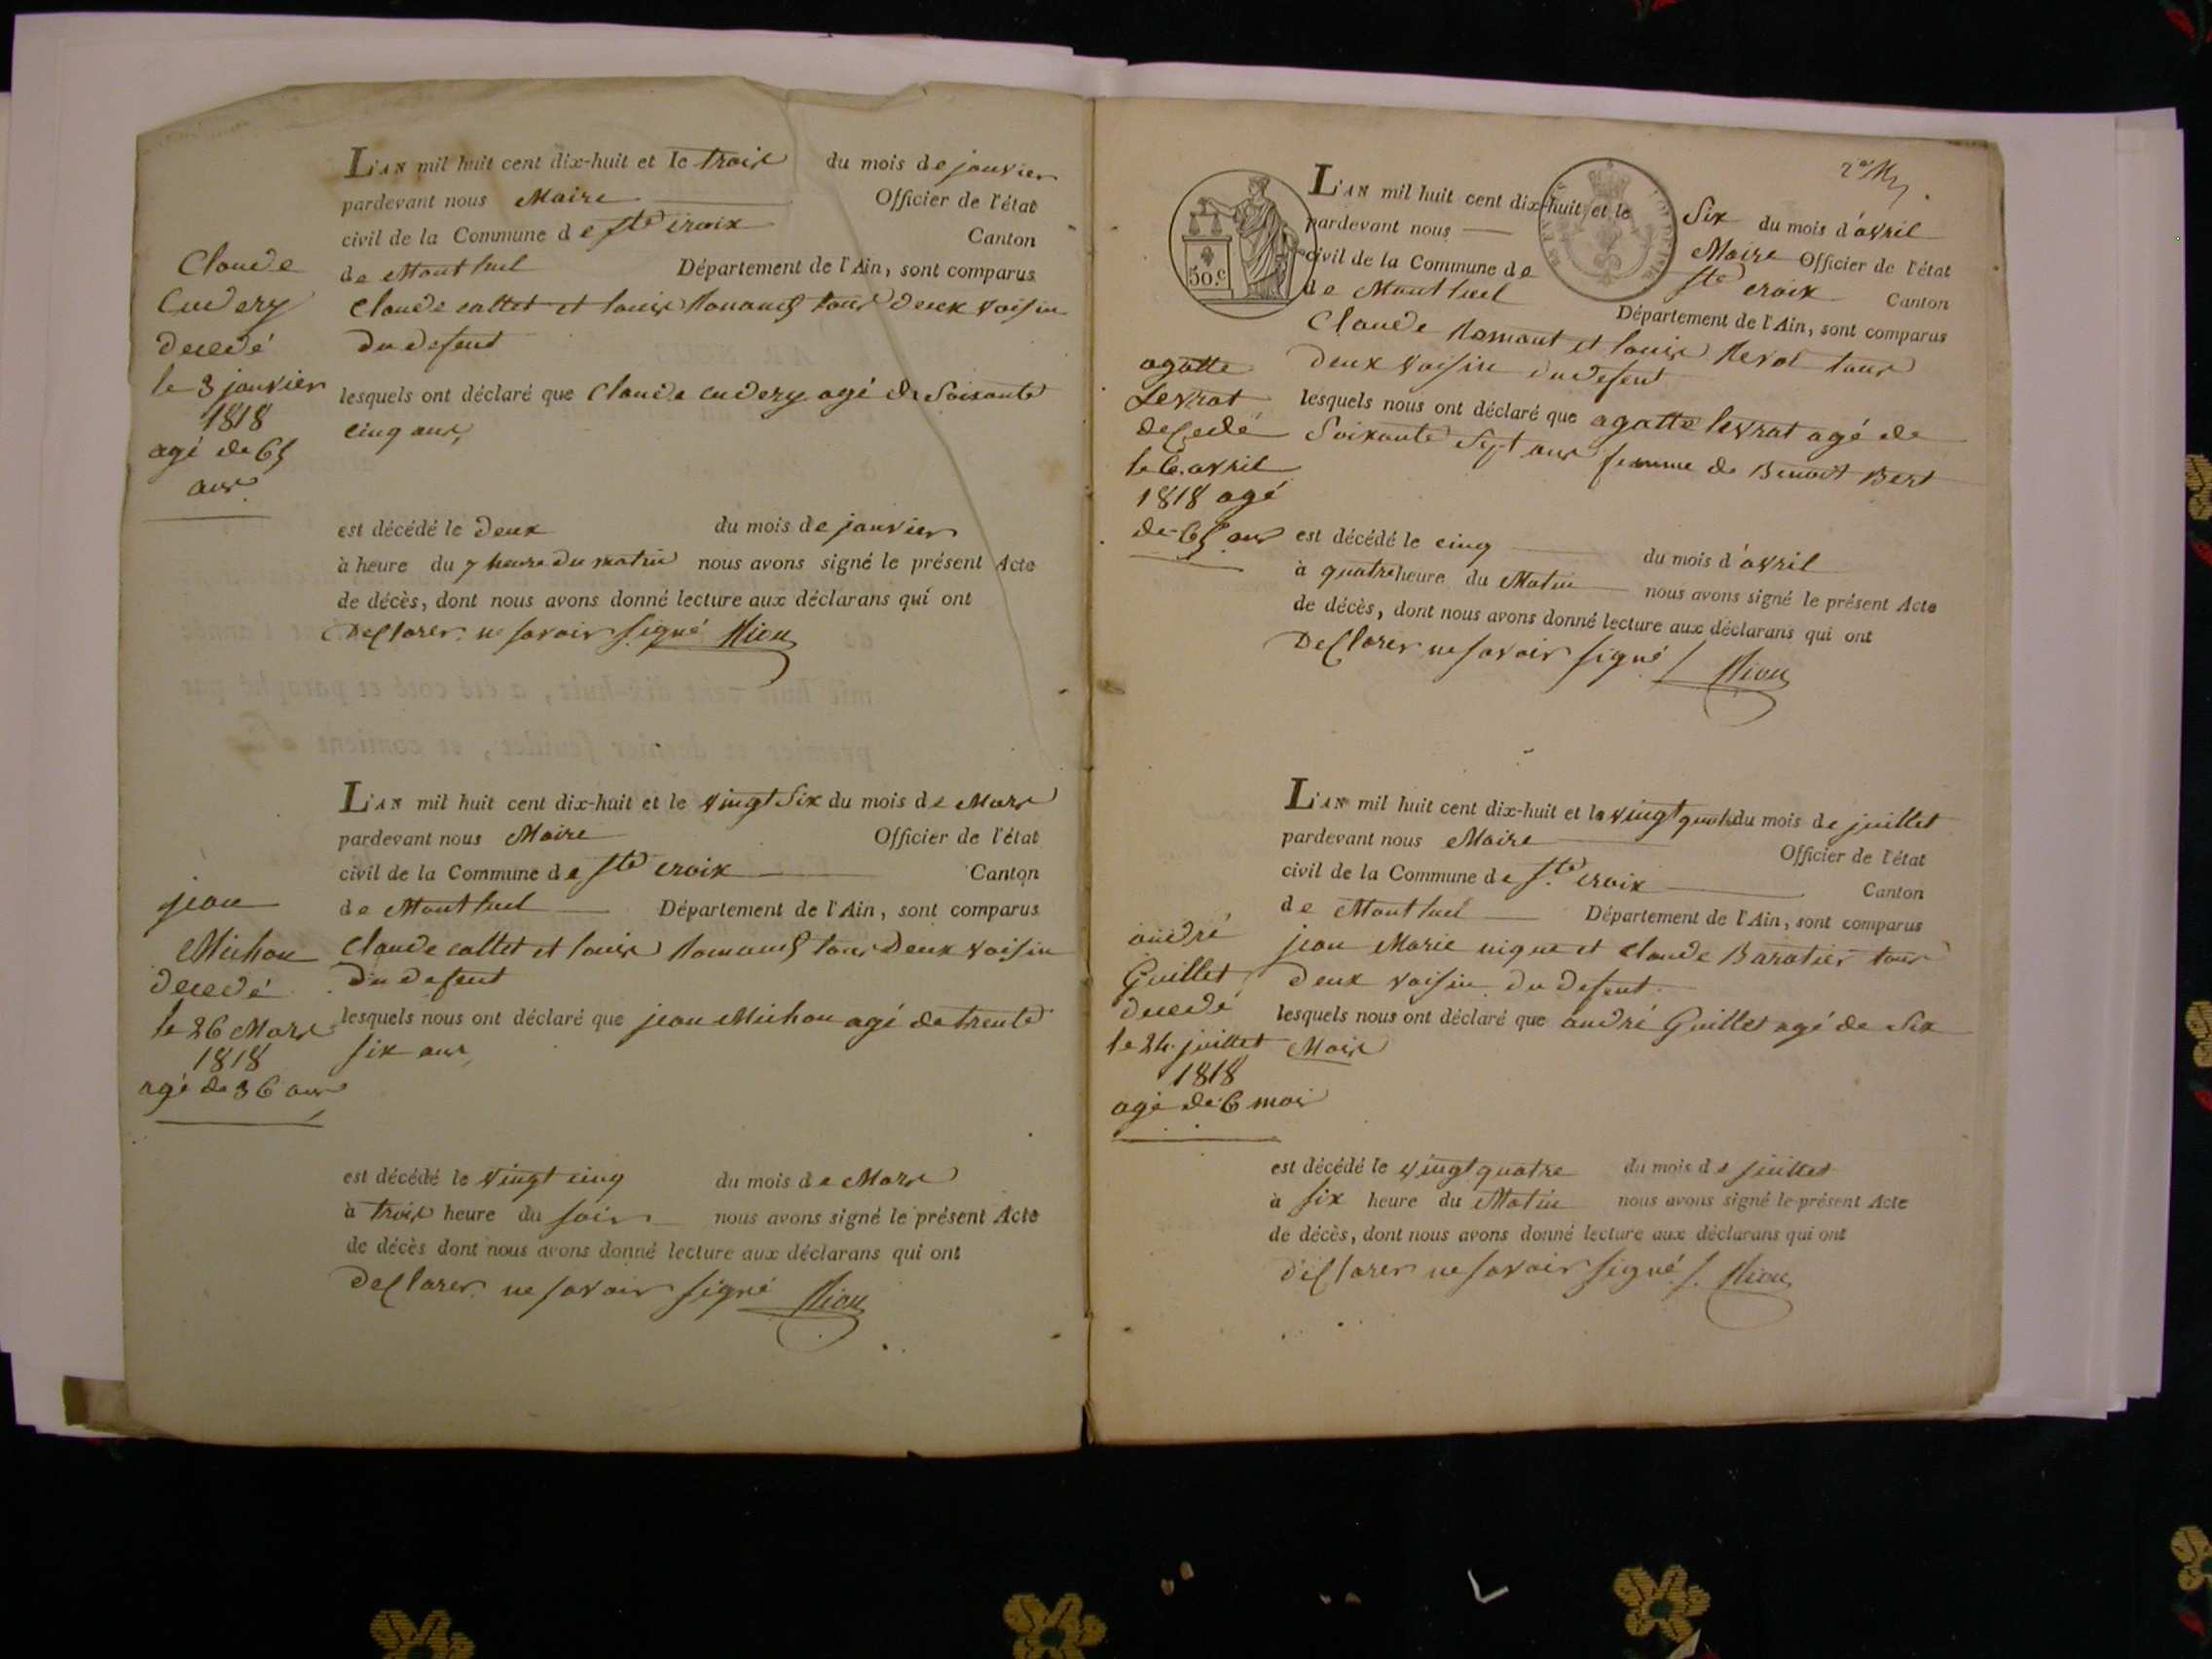 Claude
Cudery
decedé
le 3 janvier
1818
agé de 65
ans
L'AN mil huit cent dix-huit et le trois du mois de janvier
pardevant nous Maire Officier de l'état
civil de la Commune de Ste croix Canton
de Montluel Département de l'Ain, sont comparus
Claude collet et louis tous deux voisin
du defent
lesquels ont déclaré que Claude cudery agé de Soixante
cinq ans,
est décédé le deux du mois de janvier
à heure du 7 heure du matin nous avons signé le présent Acte
de décès, dont nous avons donné lecture aux déclarans qui ont
declarer ne savoir signé
jean
Michon
decedé
le 26 Mars
1818
agé de 36 ans
L'AN mil huit cent dix-huit et le vingt Six du mois de Mars
pardevant nous Maire Officier de l'état
civil de la Commune de Ste croix Canton
de Montluel Département de l'Ain, sont comparus
Claude collet et louis tous Deux voisin
du defent
lesquels nous ont déclaré que jean Michon agé de trente
six ans,
est décédé le vingt cinq du mois de Mars
à trois heure du soir nous avons signé le présent Acte
de décès dont nous avons donné lecture aux déclarans qui ont
declarer ne savoir signé
50.c
agatte
Levrat
decedé
le 6 avril
1818 agé
de 65 ans
L'AN mil huit cent dix-huit et le Six du mois d'avril
pardevant nous Maire Officier de l'état
civil de la Commune de Ste croix Canton
de Montluel Département de l'Ain, sont comparus
Claude Romant et louis Revol tous
deux voisin du defent
lesquels nous ont déclaré que agatte levrat agé de
Soixante Sept ans femme de Benoit Bert
est décédé le cinq du mois d'avril
à quatre heure du Matin nous avons signé le présent Acte
de décès, dont nous avons donné lecture aux déclarans qui ont
Declarer ne savoir signé
andré
Guillet
decedé
le 24 juillet
1818
agé de 6 mois
L'AN mil huit cent dix-huit et le vingt quatre du mois de juillet
pardevant nous Maire Officier de l'état
civil de la Commune de Ste croix Canton
de Montluel Département de l'Ain, sont comparus
jean Marie nique et Claude Baratier tous
deux voisin du defent
lesquels nous ont déclaré que andré Guillet agé de Six
Mois
est décédé le vingt quatre du mois de juillet
à six heure du Matin nous avons signé le présent Acte
de décès, dont nous avons donné lecture aux déclarans qui ont
declarer ne savoir signé